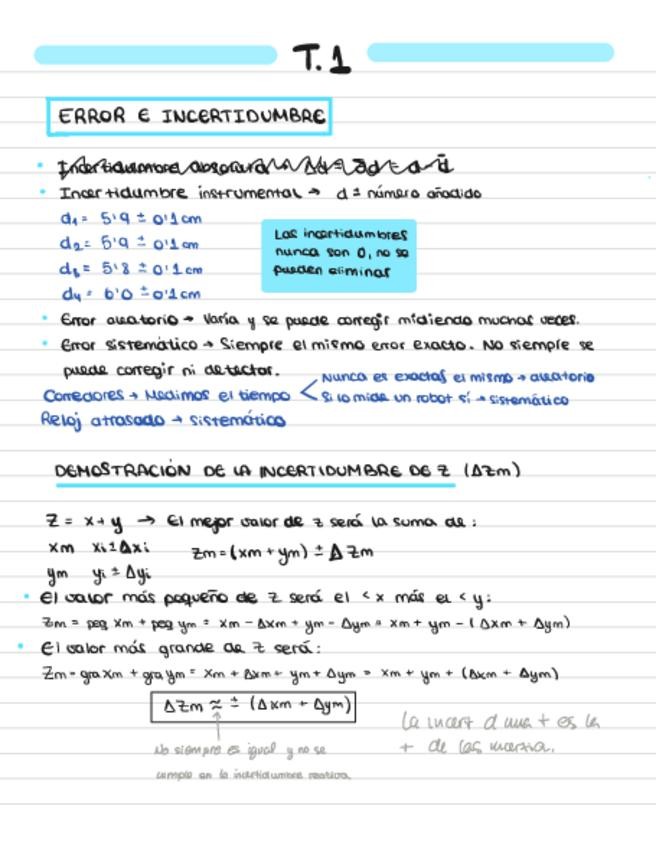 T.1
ERROR E INCERTIDUMBRE
Incertidumbre absoluta
• Incertidumbre instrumental → d ± número añadido
d₁ = 5'9 ± 0'1 cm
d₂ = 5'9 ± 0'1 cm
d₃ = 5'8 ± 0'1 cm
d₄ = 6'0 ± 0'1 cm
Las incertidumbres
nunca son 0, no se
pueden eliminar
• Error aleatorio → Varía y se puede corregir midiendo muchas veces.
• Error sistemático → Siempre el mismo error exacto. No siempre se
puede corregir ni detectar.
Corredores → Medimos el tiempo < Nunca es exactas el mismo → aleatorio
Si lo mide un robot sí → sistemático
Reloj atrasado → sistemático
DEMOSTRACIÓN DE LA INCERTIDUMBRE DE Z (ΔZm)
Z = x+y → El mejor valor de z será la suma de:
xm xi±Δxi Zm = (xm + ym) ± ΔZm
ym yi ± Δyi
• El valor más pequeño de z será el < x más el < y:
Zm = peq xm + peq ym = xm - Δxm + ym - Δym = xm + ym - (Δxm + Δym)
• El valor más grande de z será:
Zm = gra xm + gra ym = xm + Δxm + ym + Δym = xm + ym + (Δxm + Δym)
ΔZm ≈ ± (Δxm + Δym)
No siempre es igual y no se
cumple en la incertidumbre relativa
La incert d una + es la
+ de las